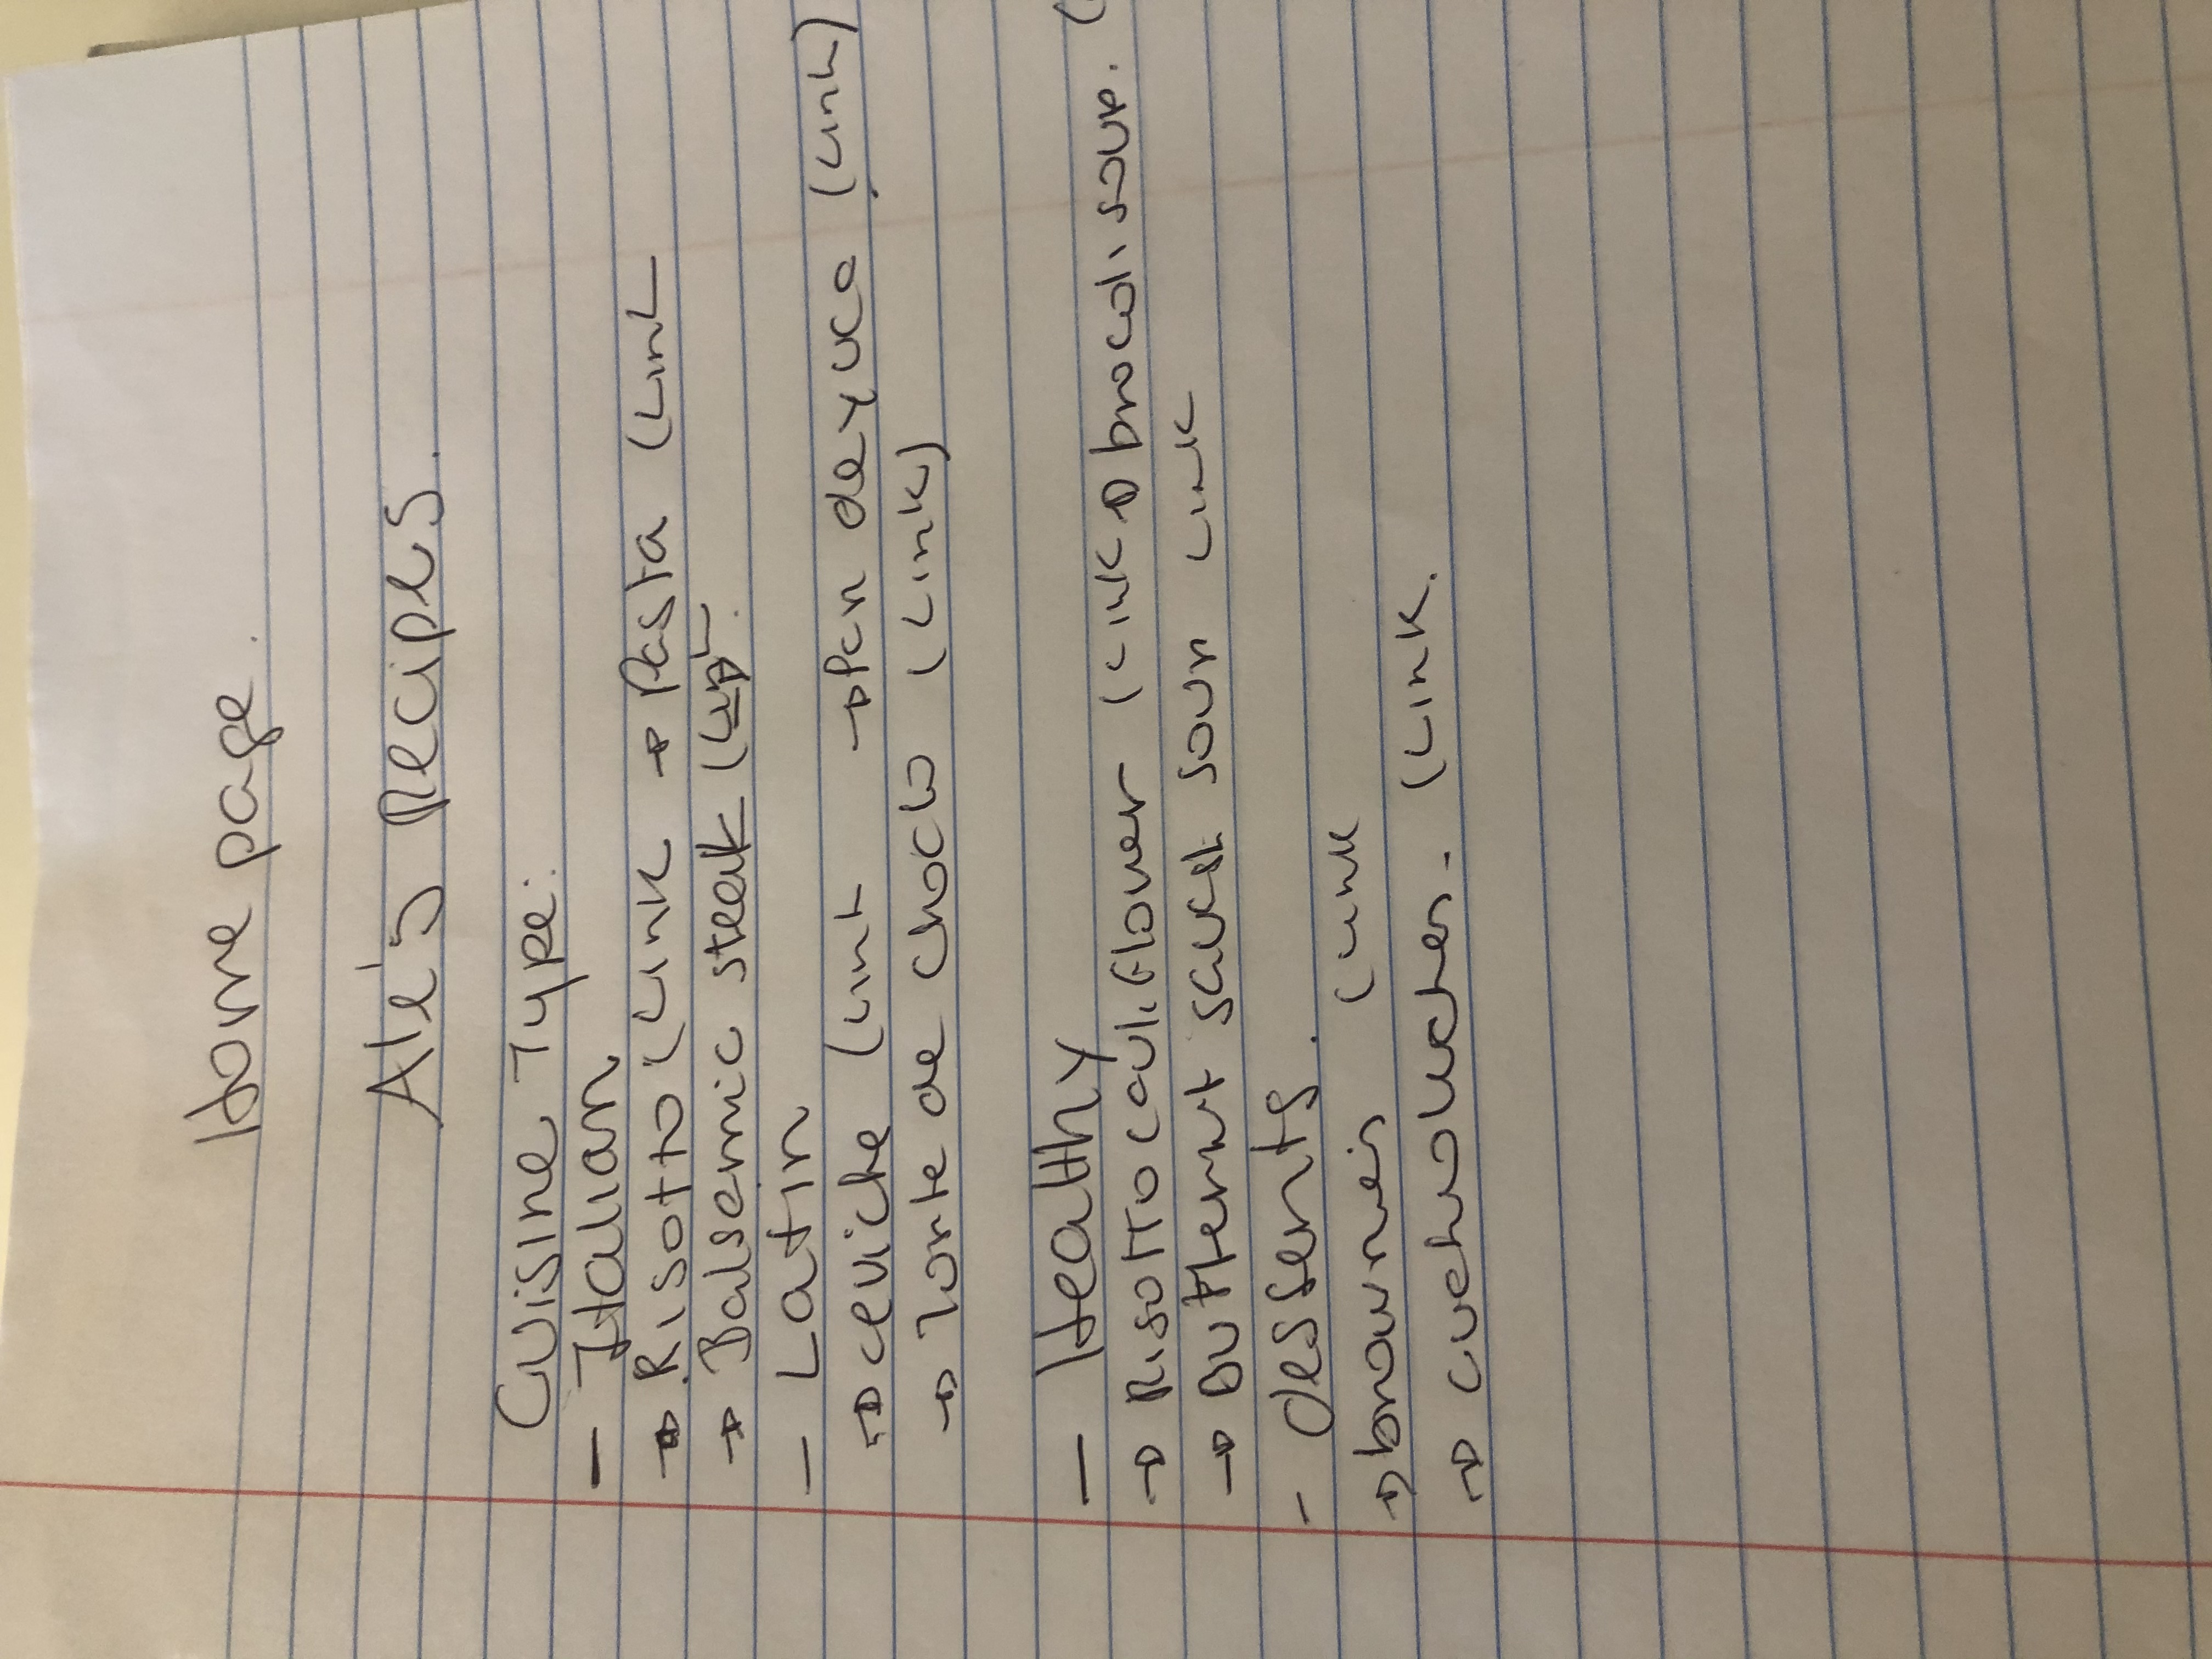 Home page.
Ale's Recipes.
Cuisine Type:
- Italian
→ Risotto (Link → Pasta (Link
→ Balsemic steak (Link.
- Latin
→ ceviche (Link → Pan de yuca (Link)
→ Torte de choclo (Link)
- Healthy
→ Risotto cauliflower (Link → brocoli soup. (
→ Butternut soup Link
- desserts.
→ brownies (Link
→ (Link.